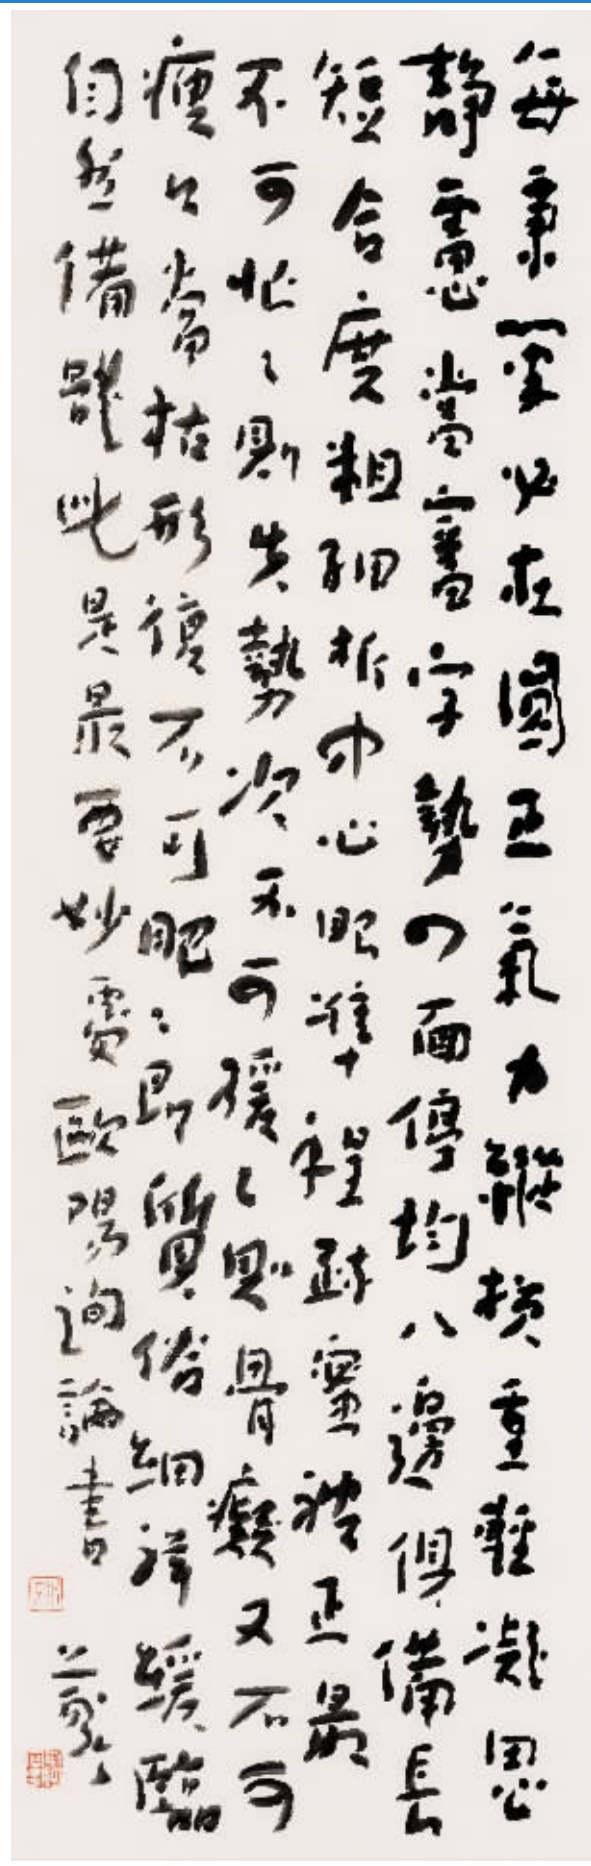 每秉筆必在圓正氣力縱橫重輕凝思
靜慮當審字勢四面停均八邊俱備長
短合度粗細折中心眼準程疎密被正最
不可忙〻則失勢次不可緩〻則骨癡又不可
瘦〻當枯形復不可肥〻即質俗細詳緩臨
自然備體此是最要妙處歐陽詢論書